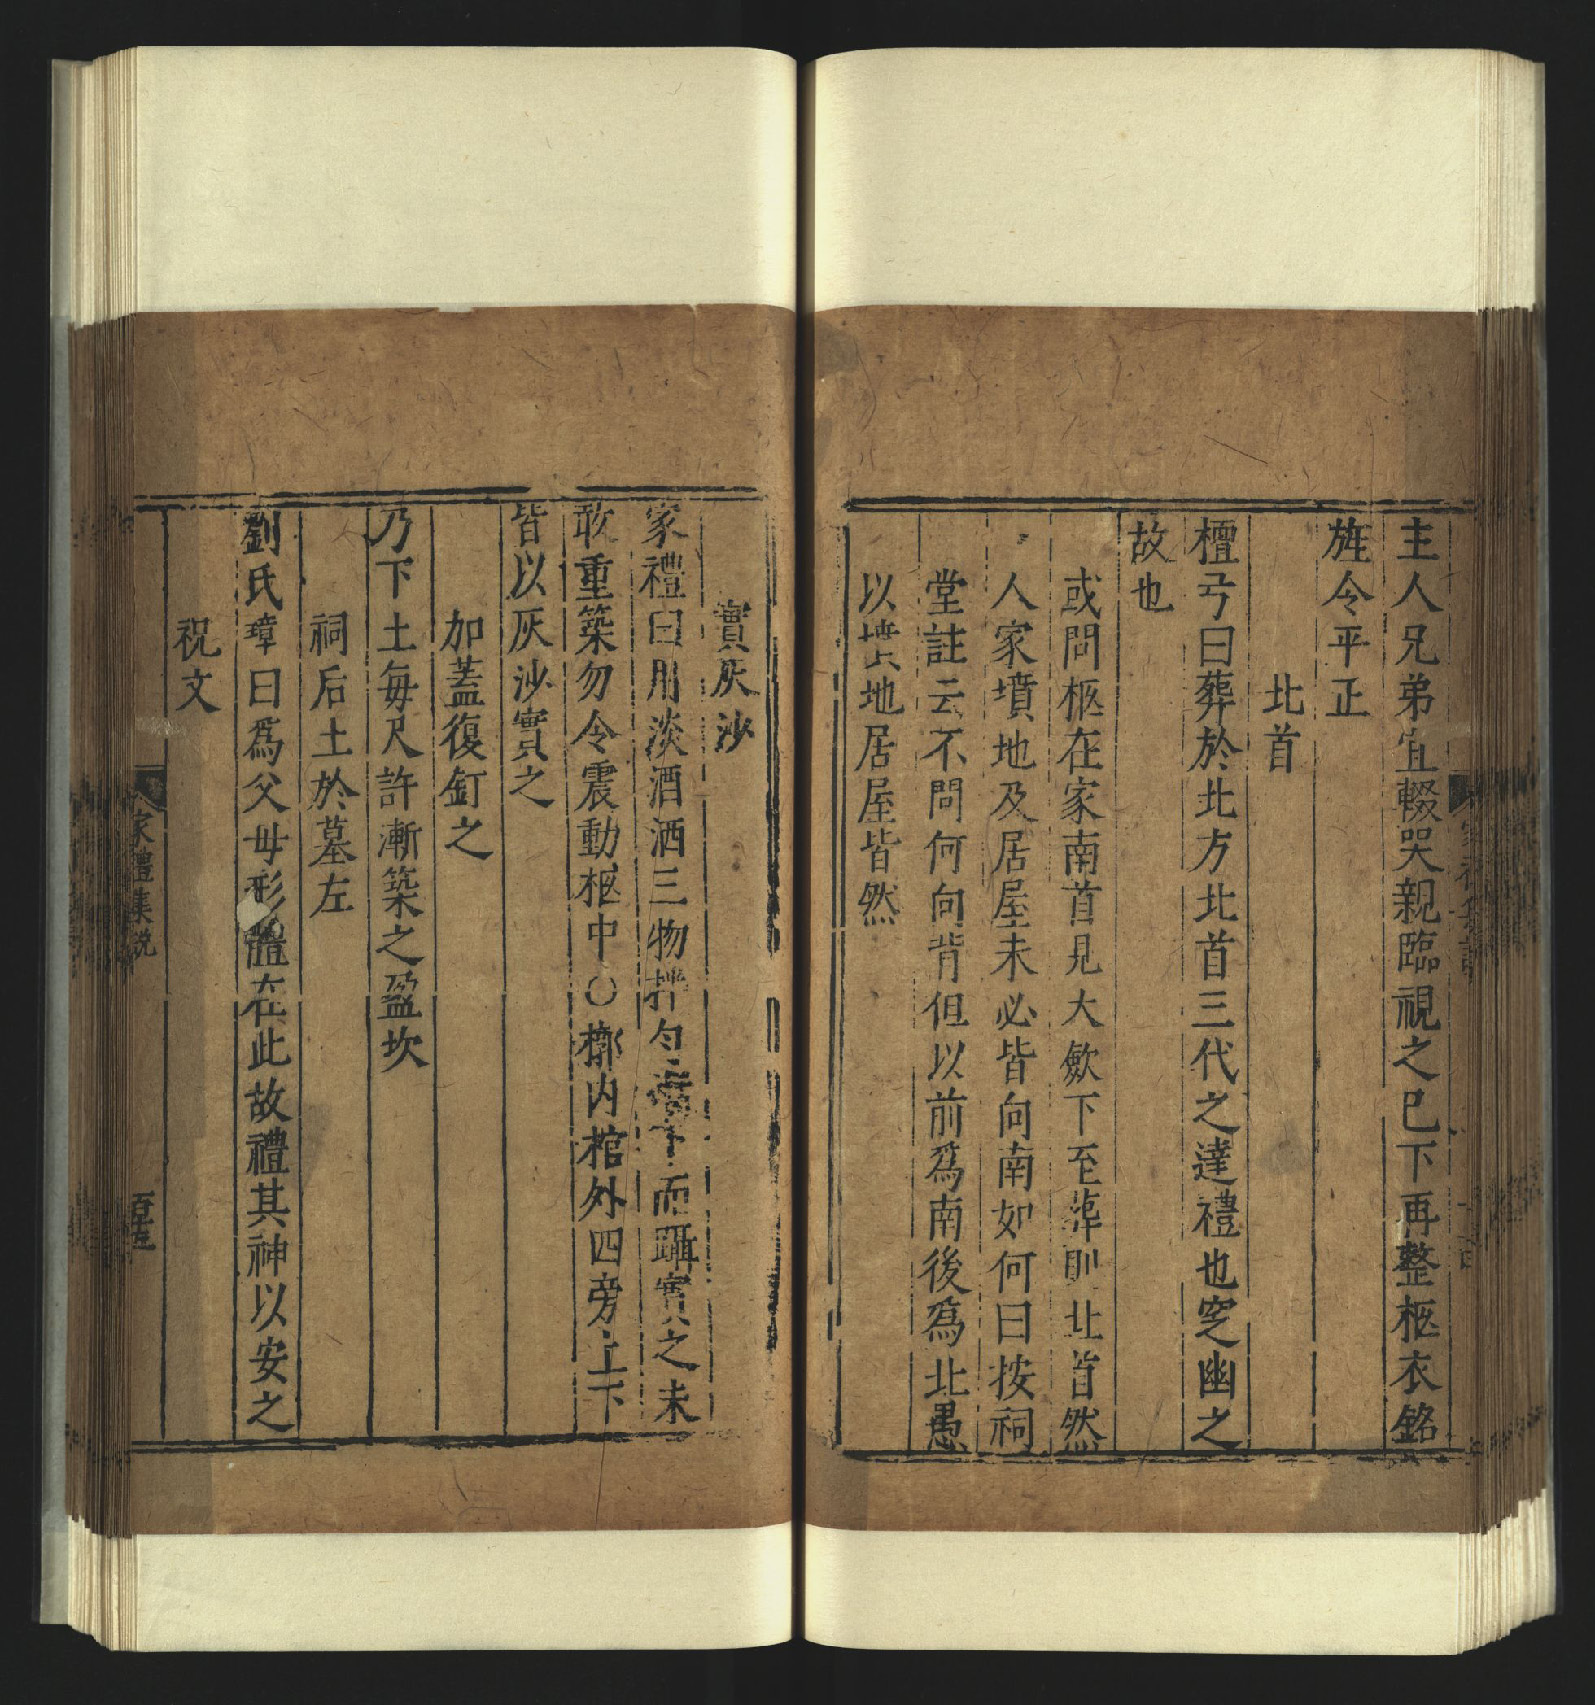 主人兄弟宜輟哭親臨視之已下再整柩衣銘
旌令平正
北首
檀弓曰葬於北方北首三代之達禮也窆幽之
故也
或問柩在家南首見大歛下至葬則北首然
人家墳地及居屋未必皆向南如何曰按祠
堂註云不問何向背但以前爲南後爲北愚
以墳地居屋皆然
實灰沙
家禮曰用淡酒洒三物拌勻 下而躡實之未
敢重築勿令震動柩中○槨内棺外四旁上下
皆以灰沙實之
加蓋復釘之
乃下土每尺許漸築之盈坎
祠后土於墓左
劉氏璋曰爲父母形體在此故禮其神以安之
祝文
家禮集説